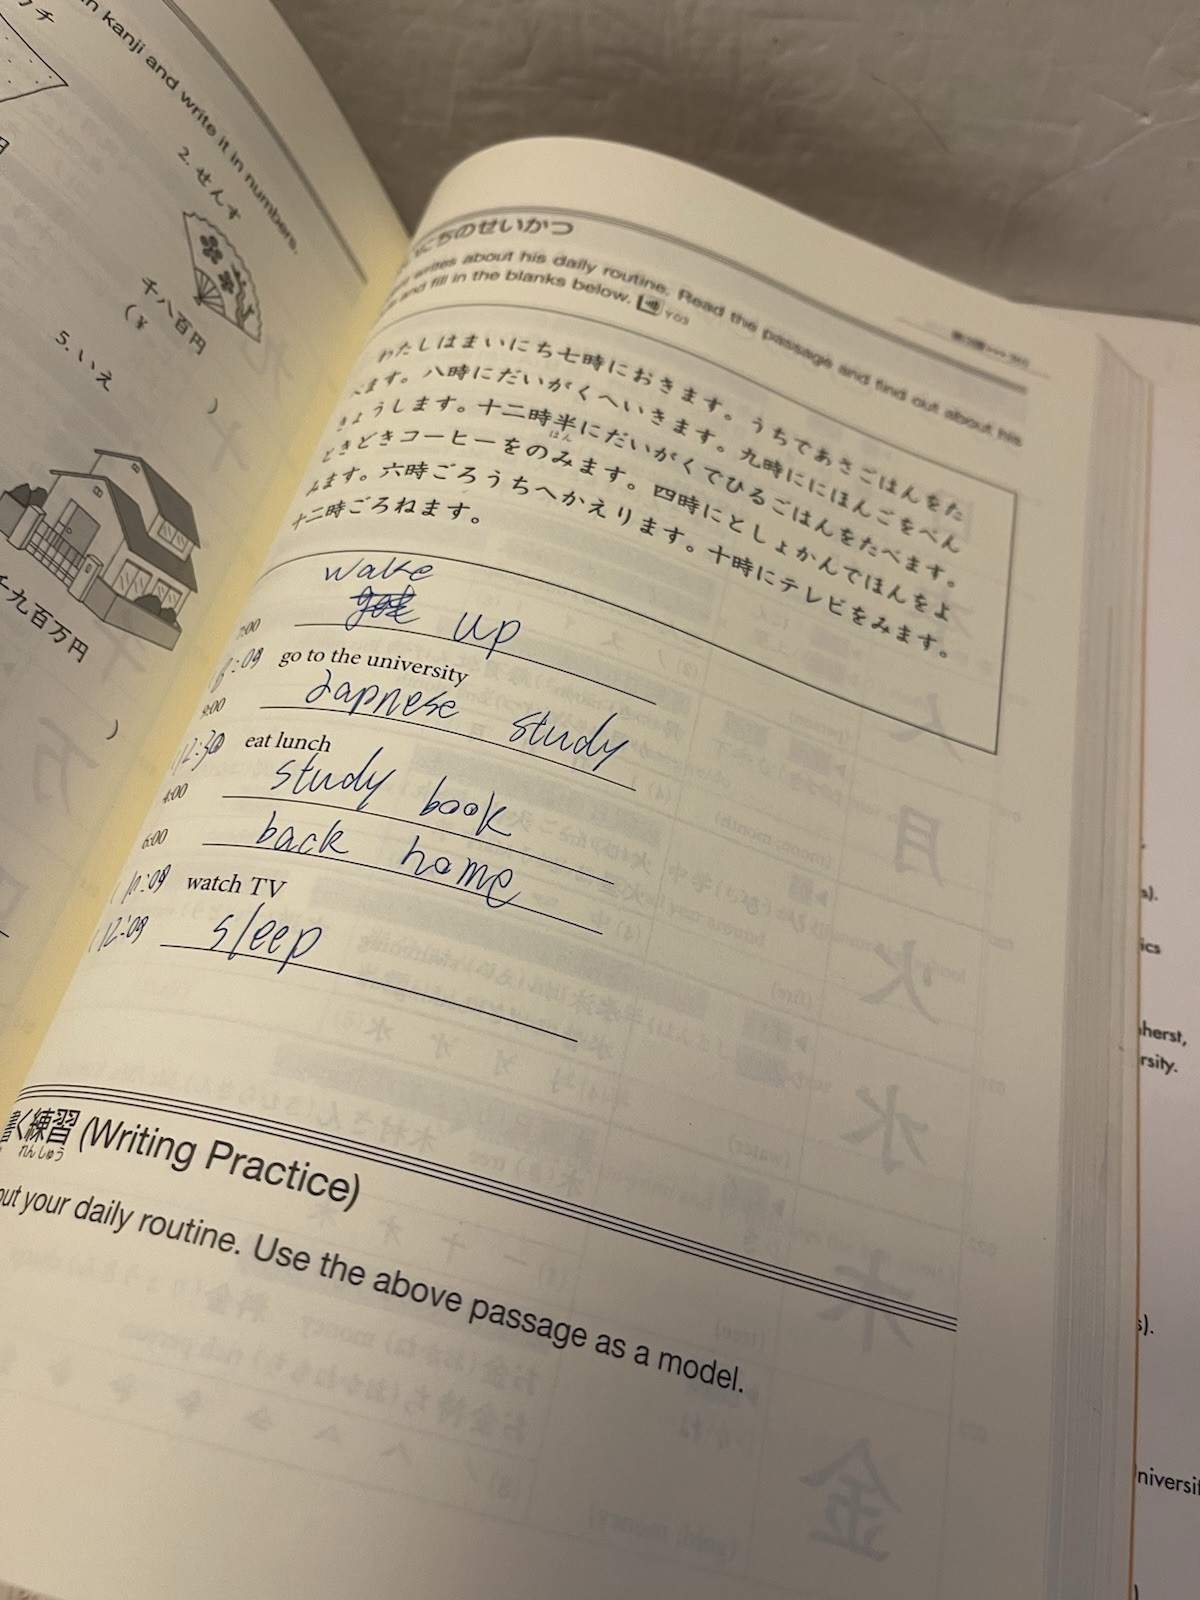 カチ
in kanji and write it in numbers.
2. せんす
千八百円
(¥
)
5. いえ
千九百万円
)
にちのせいかつ
writes about his daily routine. Read the passage and find out about his
and fill in the blanks below. Y03
わたしはまいにち七時におきます。うちであさごはんをた
べます。八時にだいがくへいきます。九時ににほんごをべん
きょうします。十二時半にだいがくでひるごはんをたべます。
はん
ときどきコーヒーをのみます。四時にとしょかんでほんをよ
みます。六時ごろうちへかえります。十時にテレビをみます。
十二時ごろねます。
wake
7:00 up
8:00 go to the university
9:00 Japnese study
12:30 eat lunch
4:00 study book
6:00 back home
10:00 watch TV
12:00 sleep
書く練習 (Writing Practice)
れんしゅう
out your daily routine. Use the above passage as a model.
s).
ics
herst,
rsity.
s).
niversit
)